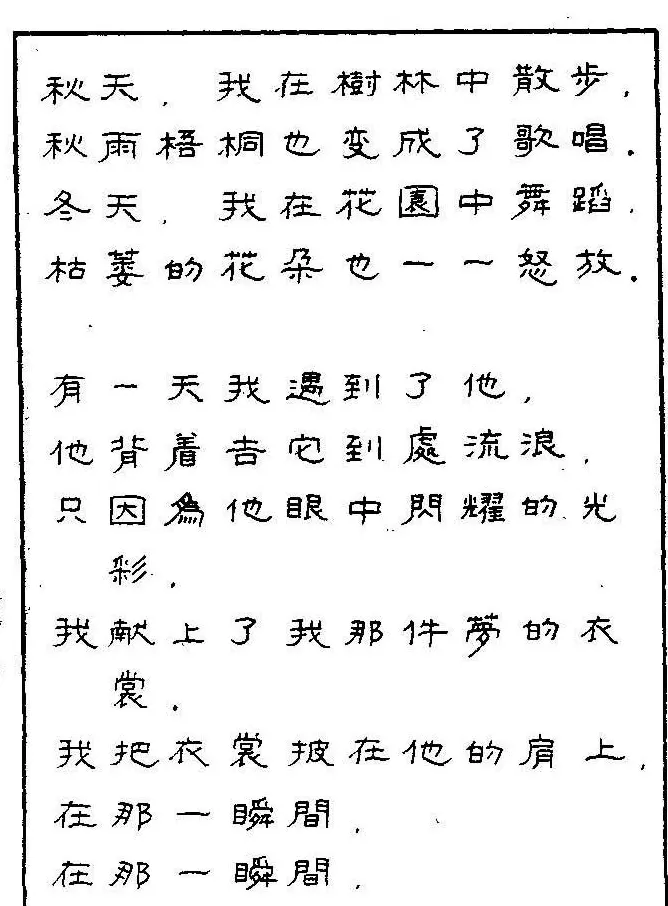 秋天，我在樹林中散步，
秋雨梧桐也变成了歌唱．
冬天，我在花園中舞蹈，
枯萎的花朵也一一怒放．
有一天我遇到了他，
他背着吉它到處流浪，
只因為他眼中閃耀的光
彩．
我献上了我那件夢的衣
裳．
我把衣裳披在他的肩上，
在那一瞬間，
在那一瞬間，